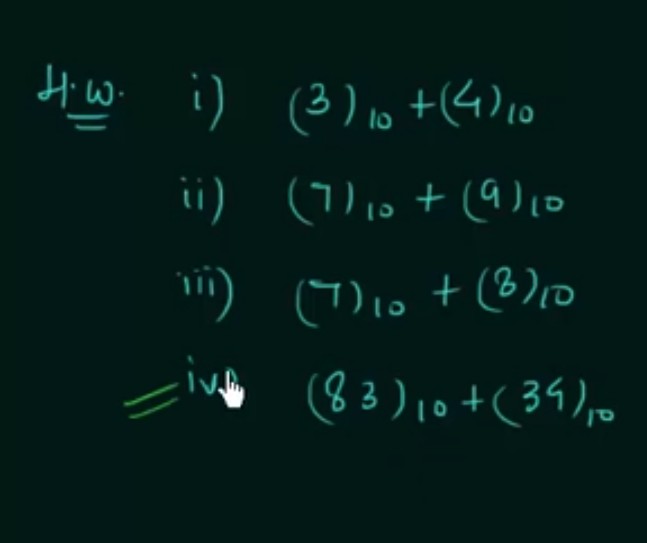 H.W. i) (3)₁₀ + (4)₁₀
ii) (7)₁₀ + (9)₁₀
iii) (7)₁₀ + (8)₁₀
iv) (83)₁₀ + (34)₁₀